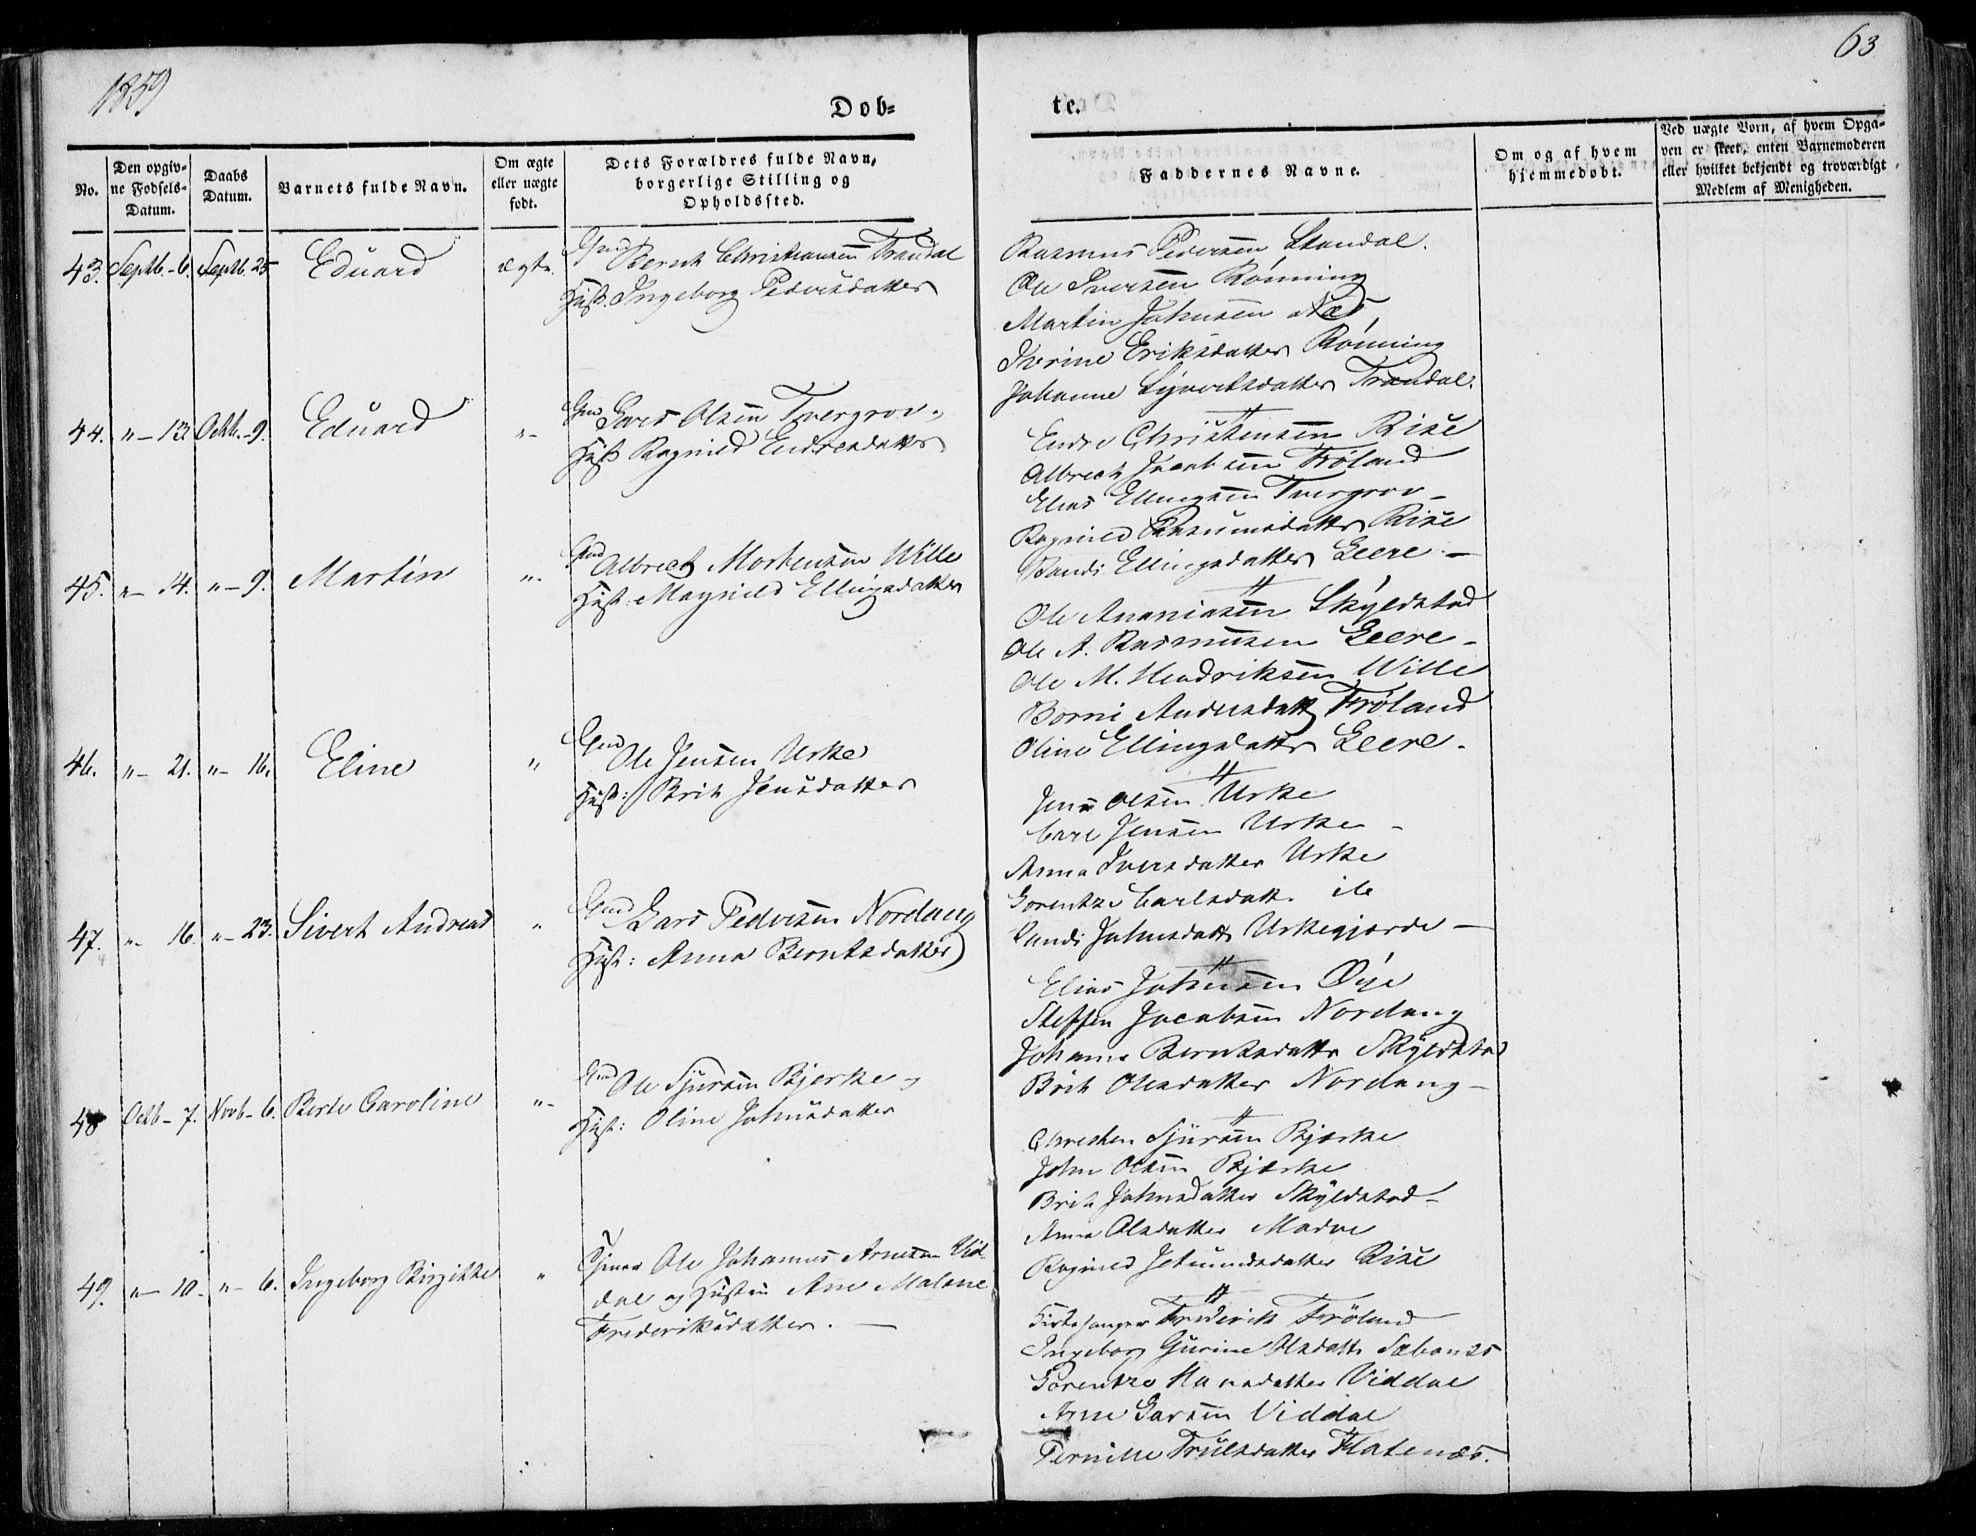 1859
63
Dob-
te.
No.
Den opgiv-
ne Fodsels-
Datum.
Daabs
Datum.
Barnets fulde Navn.
Om ægte
eller uægte
fodt.
Dets Forældres fulde Navn,
borgerlige Stilling og
Opholdssted.
Faddernes Navne.
Om og af hvem
hjemmedobt.
Ved uægte Born, af hvem Opga-
ven er skeet, enten Barnemoderen
eller hvilket bekjendt og troværdigt
Medlem af Menigheden.
43. Septb. - 6. Septb. 25 Eduard ægte. Gmd Bernt Christiansen Trandal
Hust. Ingeborg Pedersdatter
Rasmus Pedersen Standal.
Ole Iversen Rønning
Martin Johnsen Næs
Iverine Eriksdatter Rønning
Johanne Syvertsdatter Trandal.
44. " - 13. Octb. - 9. Eduard " - Gmd Lars Olsen Tvergrov.
Hust Ragnild Endresdatter
Endre Christensen Rise
Albrect Jacobsen Frøland
Elias Ellingsen Tvergrov -
Ragnild Rasmusdatter Rise
Randi Ellingsdatter Leere -
45. " - 14. " - 9. Martin " - Gmd Albrect Mortensen Wille
Hust: Magnild Ellingsdatter
Ole Ananiasen Skyldstad
Ole A. Rasmussen Leere -
Ole M. Hendriksen Wille
Borni Andersdatt Frøland
Oline Ellingsdatter Leere -
46. " - 21. " - 16. Eline " Gmd Ole Jensen Urke
Hust: Brit Jensdatter
Jens Olsen Urke
Carl Jensen Urke -
Anna Iversdatter Urke
Lorentze Carlsdatt. ib
Randi Johnsdatt Urkegjerde -
47. " - 16. " - 23. Sivert Andreas " Gmd Lars Pedersen Nordang
Hust: Anna Berntsdatter
Elias Johnsen Øye
Steffen Jacobsen Nordang
Johanne Berntsdatter Skyldstad
Brit Olsdatter Nordang -
48 Octb - 7. Novb - 6. Berte Caroline " - Gmd Ole Sjursen Bjerke -
Hust: Oline Johnsdatter
Christen Sjursen Bjerke
John Olsen Bjerke
Brit Johnsdatter Skyldstad -
Anna Olsdatter Marve
Ragnild Johnsdatter Rise
49. " - 10. " - 6. Ingeborg Birgitte " Ole Johannes Arnesen Vid-
dal og Hustru Ane Malene
Frederiksdatter. -
Kirkesanger Frederik Frøland
Ingeborg Gurine Olsdatt Sæbønæs
Lorentze Hansdatter Viddal
Arne Larsen Viddal
Pernille Trulsdatter Flatenæs.